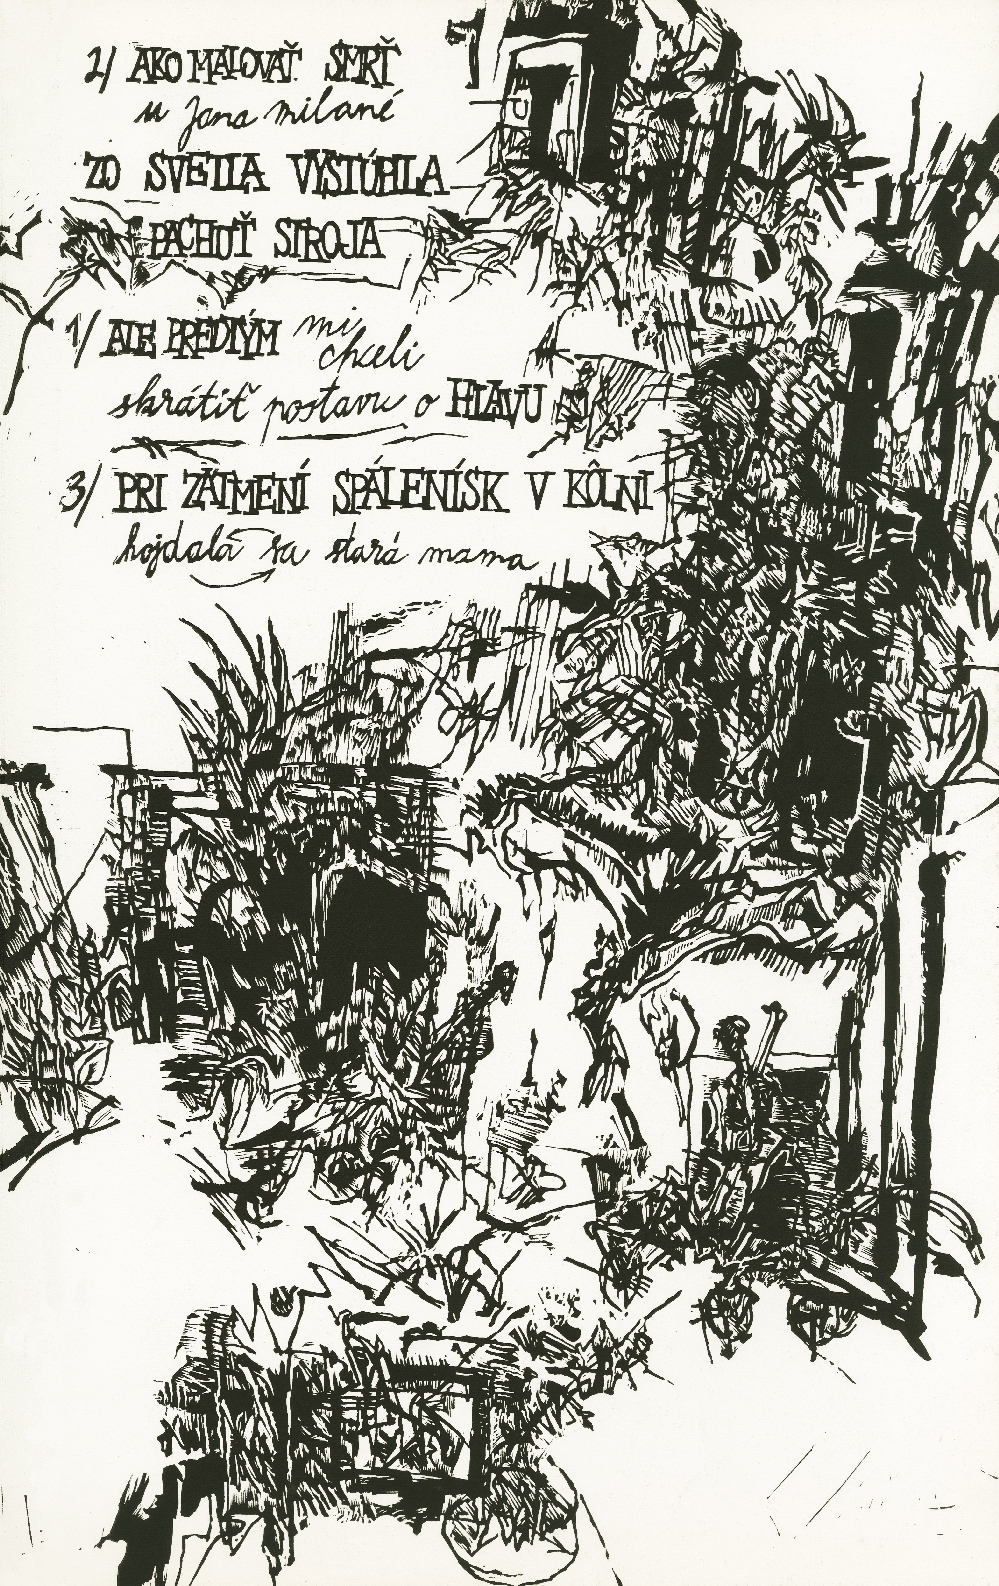 2/ AKO MALOVAŤ SMRŤ
u Jana milané
ZO SVETLA VYSTÚPLA
PACHUŤ STROJA
1/ ALE PREDTÝM mi
chceli
skrátiť postavu o HLAVU
3/ PRI ZATMENÍ SPÁLENÍSK V KÔLNI
hojdala sa stará mama